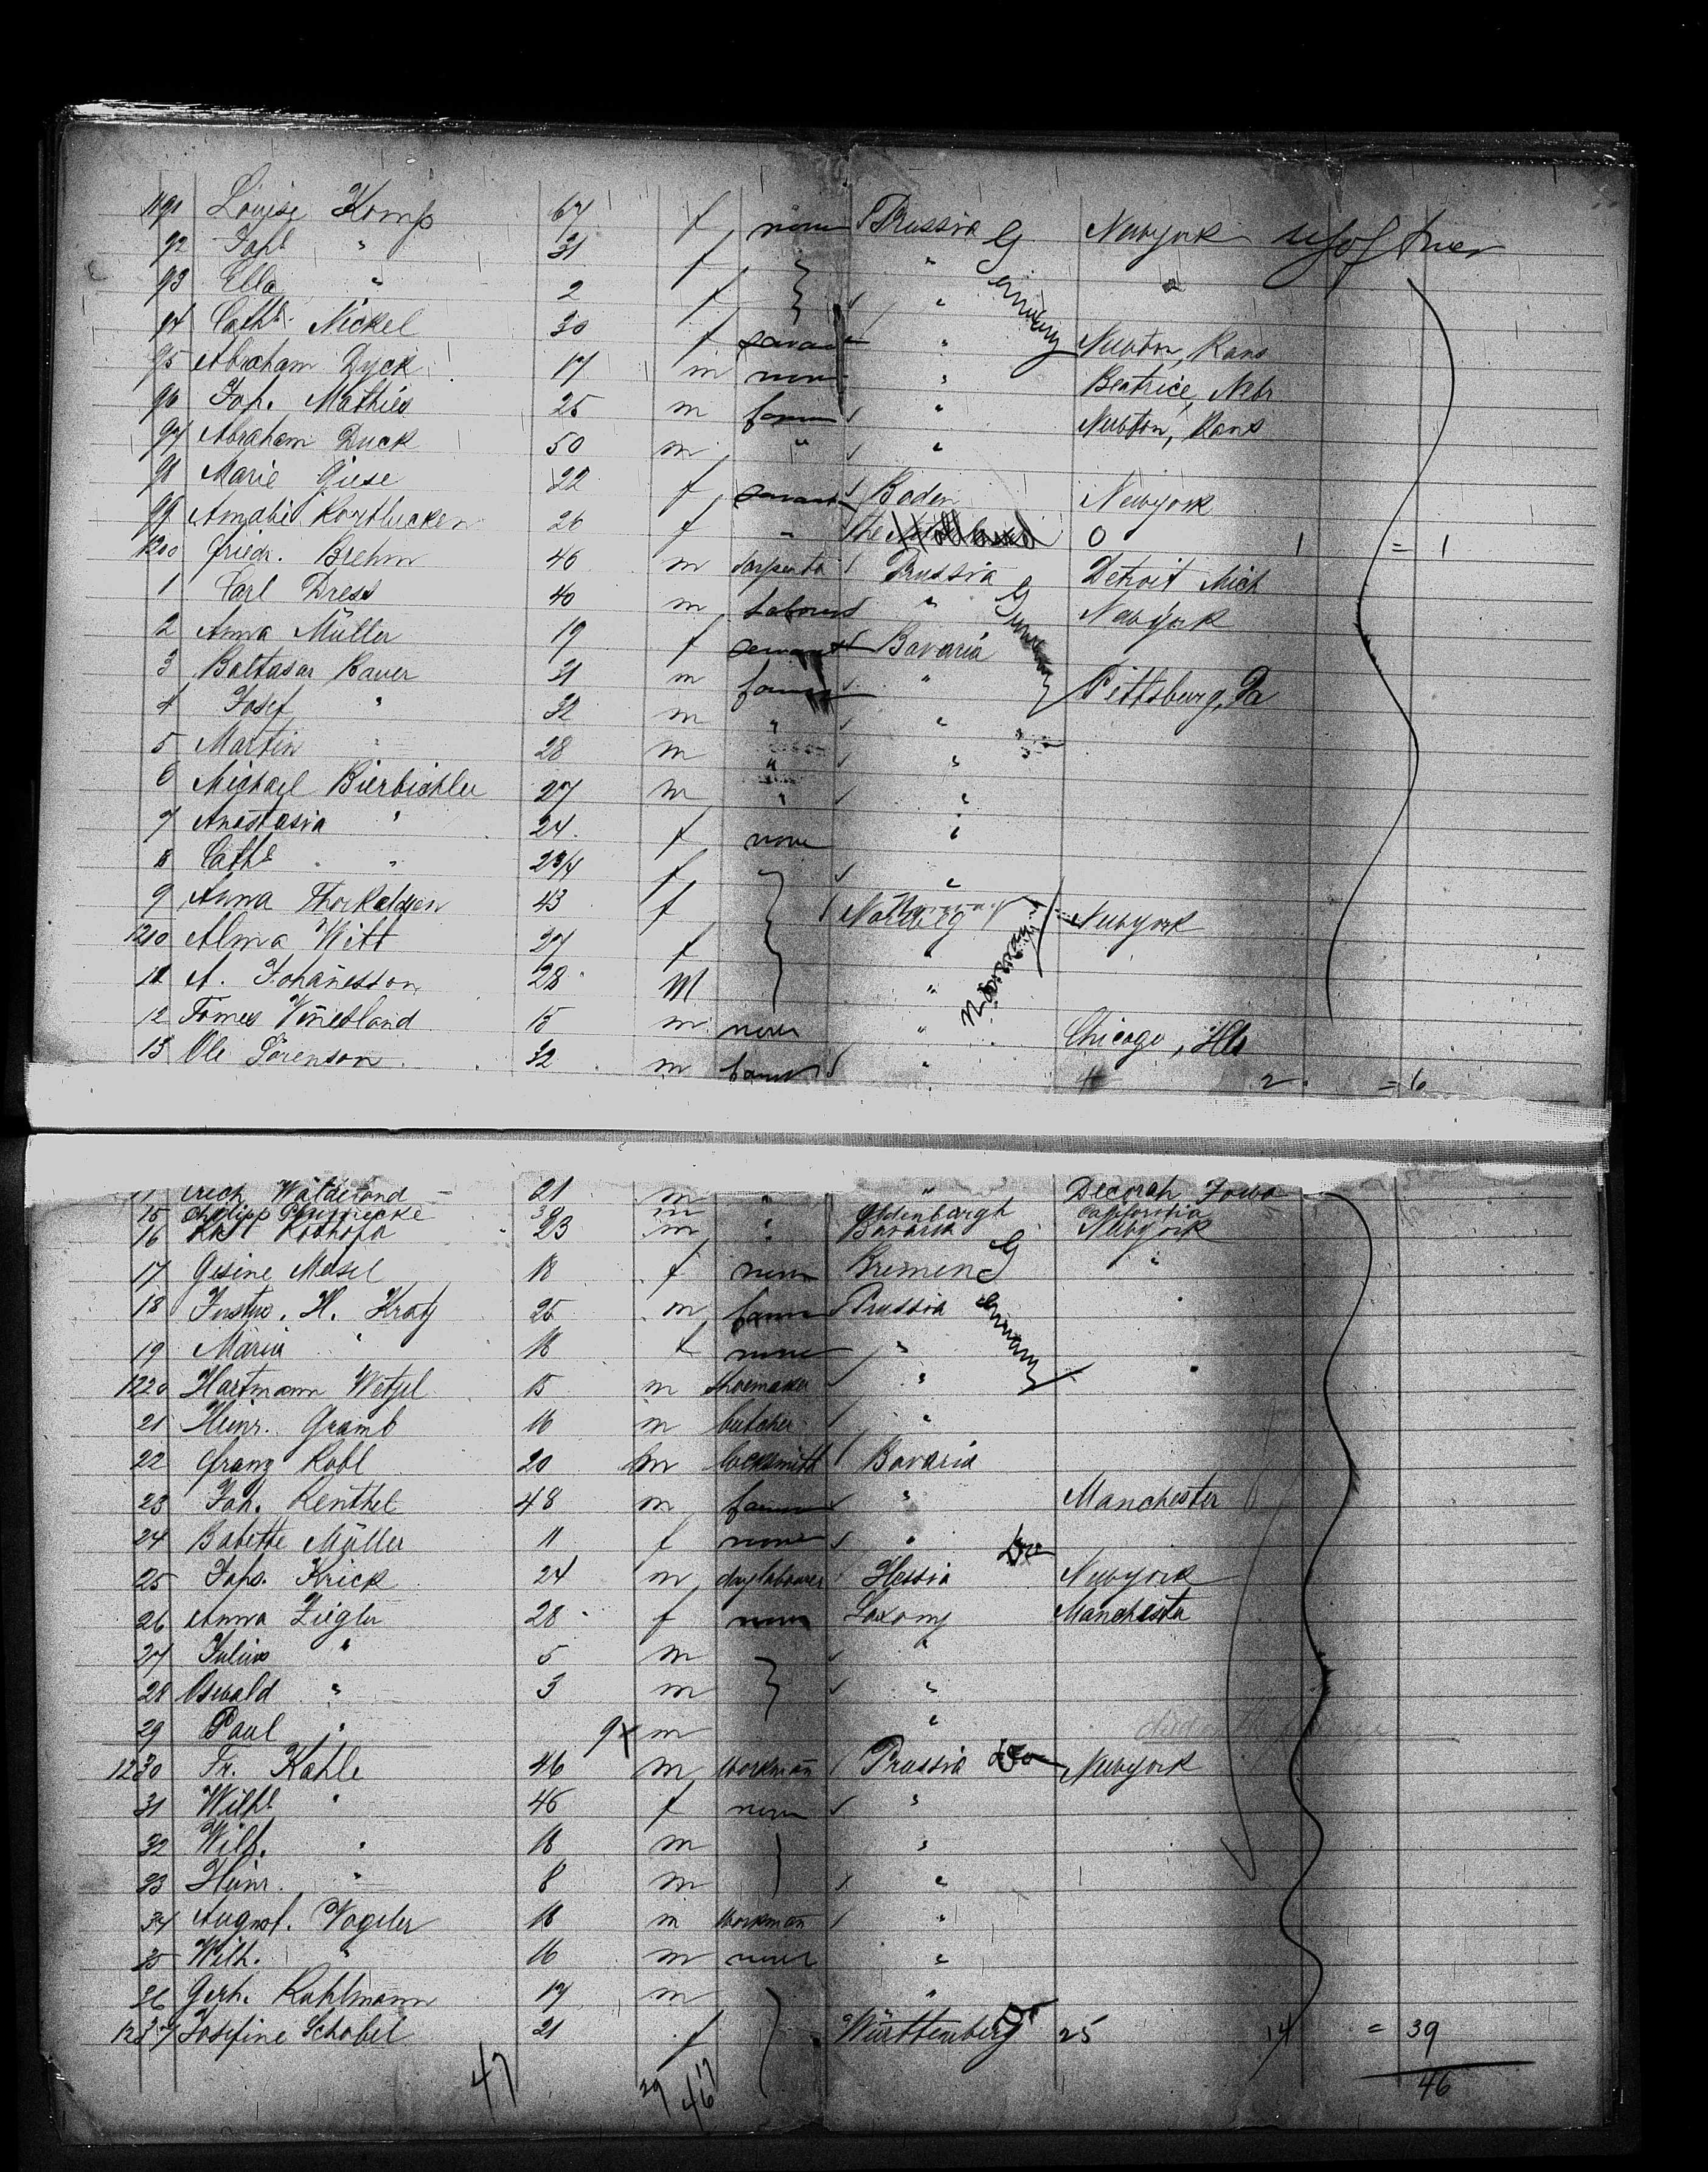 1191 Louise Komp 67 f none Prussia Newyork
92 Joh. " 31 f "
93 Ella " 2 f " "
94 Cath. Nickel 30 f servant " Newton, Kans
95 Abraham Dyck 17 m none " Beatrice, Nebr.
96 Joh. Mathies 25 m farmer " Newton, Kans
97 Abraham Duck 50 m " "
98 Marie Giese 22 f servant Baden Newyork
99 26 f " 0 1 = 1
1200 Friedr. Brehm 46 m Prussia Detroit Mich
1 Carl Dress 40 m Labourer " Newyork
2 Anna Müller 19 f servant Bavaria
3 Baltasar Bauer 31 m farmer " Pittsburg, Pa
4 Josef " 32 m " "
5 Martin " 28 m " "
6 Michael Bierbichler 27 m " "
7 Anastasia " 24 f none "
8 Cath. " 2 3/4 f "
9 Anna Thorkaldsen 43 f Norway Newyork
1210 Alma Witt 27 f "
11 A. Johanesson 28 m "
12 15 m none " Chicago, Ills
13 Ole Sörenson 32 m farmer "
4 2 = 6
21 m " " Decorah Iowa
15 Philipp m " Oldenburgh California
16 23 m " Bavaria Newyork
17 Gesine Mesel 18 f none Bremen "
18 Justus. H. Kratz 25 m farmer Prussia "
19 Maria " 18 f none " "
1220 Hartmann Wetzel 15 m shoemaker "
21 Heinr. Gramb 16 m butcher "
22 Franz Kobl 20 m locksmith Bavaria
23 Joh. Renthel 48 m farmer " Manchester
24 Babette Müller 11 f none "
25 Johs. Krick 24 m daylabourer Hessia Newyork
26 Anna Ziegler 28 f none Saxony Manchester
27 Julius " 5 m "
28 Oswald " 3 m "
29 Paul " 9 m "
1230 Fr. Kahle 46 m workman Prussia Newyork
31 Wilh. " 45 f none "
32 Wilh. " 18 m "
33 Heinr. " 8 m "
34 August. Vogeler 18 m workman "
35 Wilh. " 16 m none "
36 Gerh. Kuhlmann 17 m "
1237 Josefine Schobel 21 f Württemberg 25 14 = 39
47 29 17 46 46
Germany
Germany
Norway
Germany